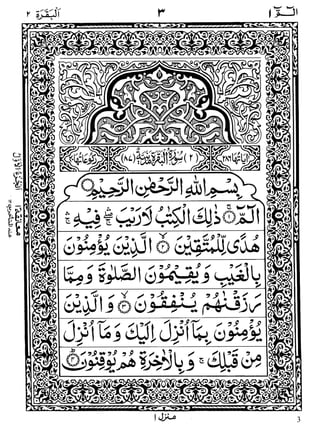 الٓمّٓ ١
٣
البقرة ٢
اٰیاتها ٢٨٦
(٢) سُوْرَةُ الْبَقَرَةِ مَدَنِيَّةٌ (٨٧)
رکوعاتها
بِسْمِ اللّٰهِ الرَّحْمٰنِ الرَّحِيْمِ
الٓمّٓ ۚ ذٰلِكَ الْكِتٰبُ لَا رَيْبَ ۛۚ فِيْهِ ۛۚ
هُدًى لِّلْمُتَّقِيْنَ ۙ الَّذِيْنَ يُؤْمِنُوْنَ
بِالْغَيْبِ وَيُقِيْمُوْنَ الصَّلٰوةَ وَمِمَّا
رَزَقْنٰهُمْ يُنْفِقُوْنَ ۙ وَالَّذِيْنَ
يُؤْمِنُوْنَ بِمَآ اُنْزِلَ اِلَيْكَ وَمَآ اُنْزِلَ
مِنْ قَبْلِكَ ۚ وَبِالْاٰخِرَةِ هُمْ يُوْقِنُوْنَ ۗ
منزل ١
3